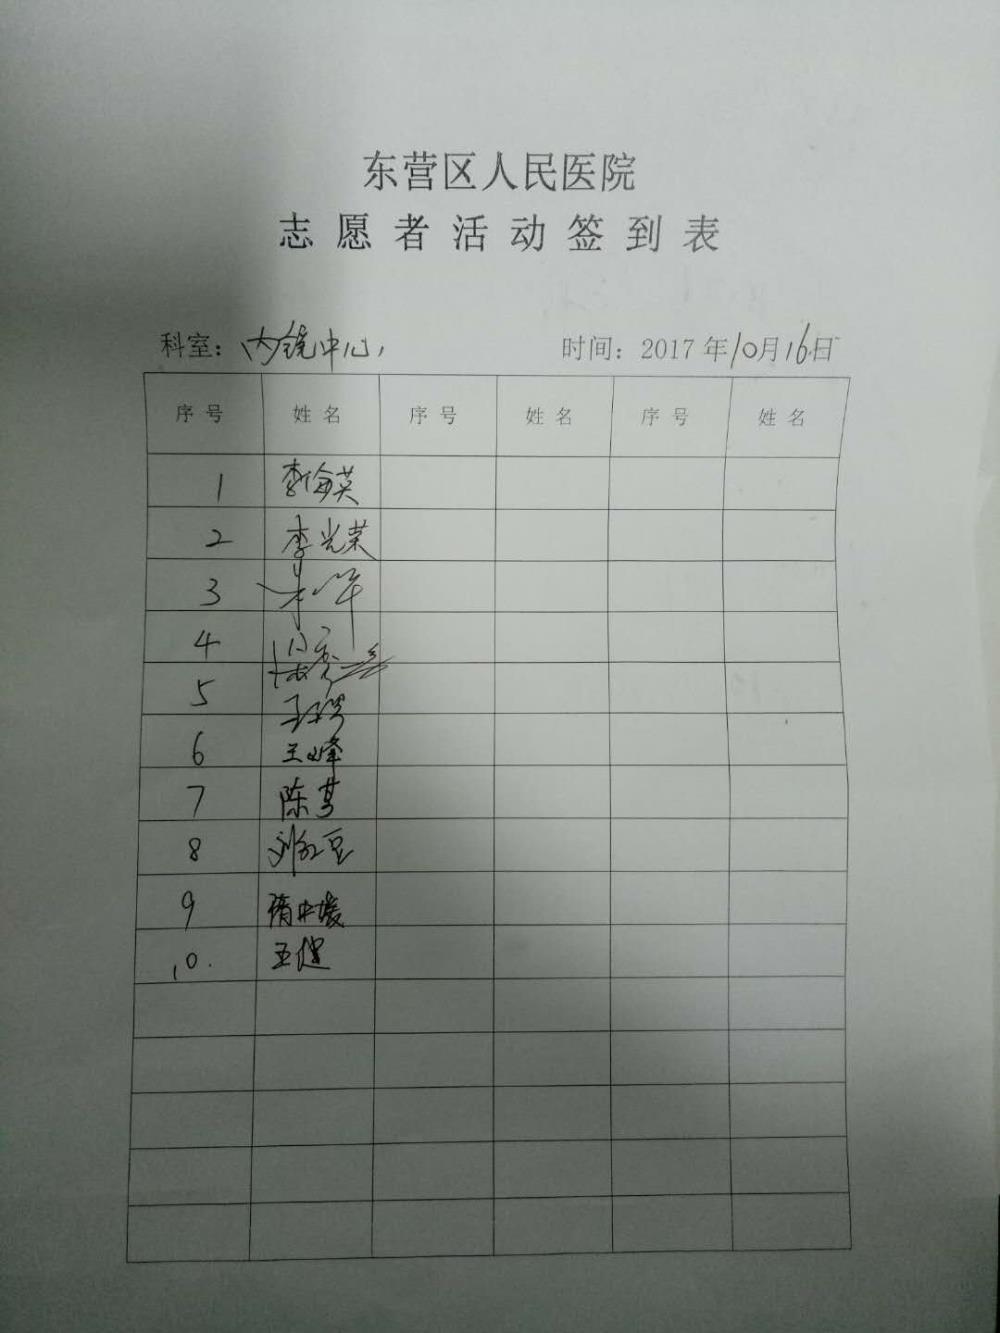 东营区人民医院
志愿者活动签到表
科室：内镜中心 时间：2017年10月16日
序号 姓名 序号 姓名 序号 姓名
1 李海英
2 李光荣
3
4
5
6 王峰
7 陈
8 刘红豆
9 隋媛
10. 王健